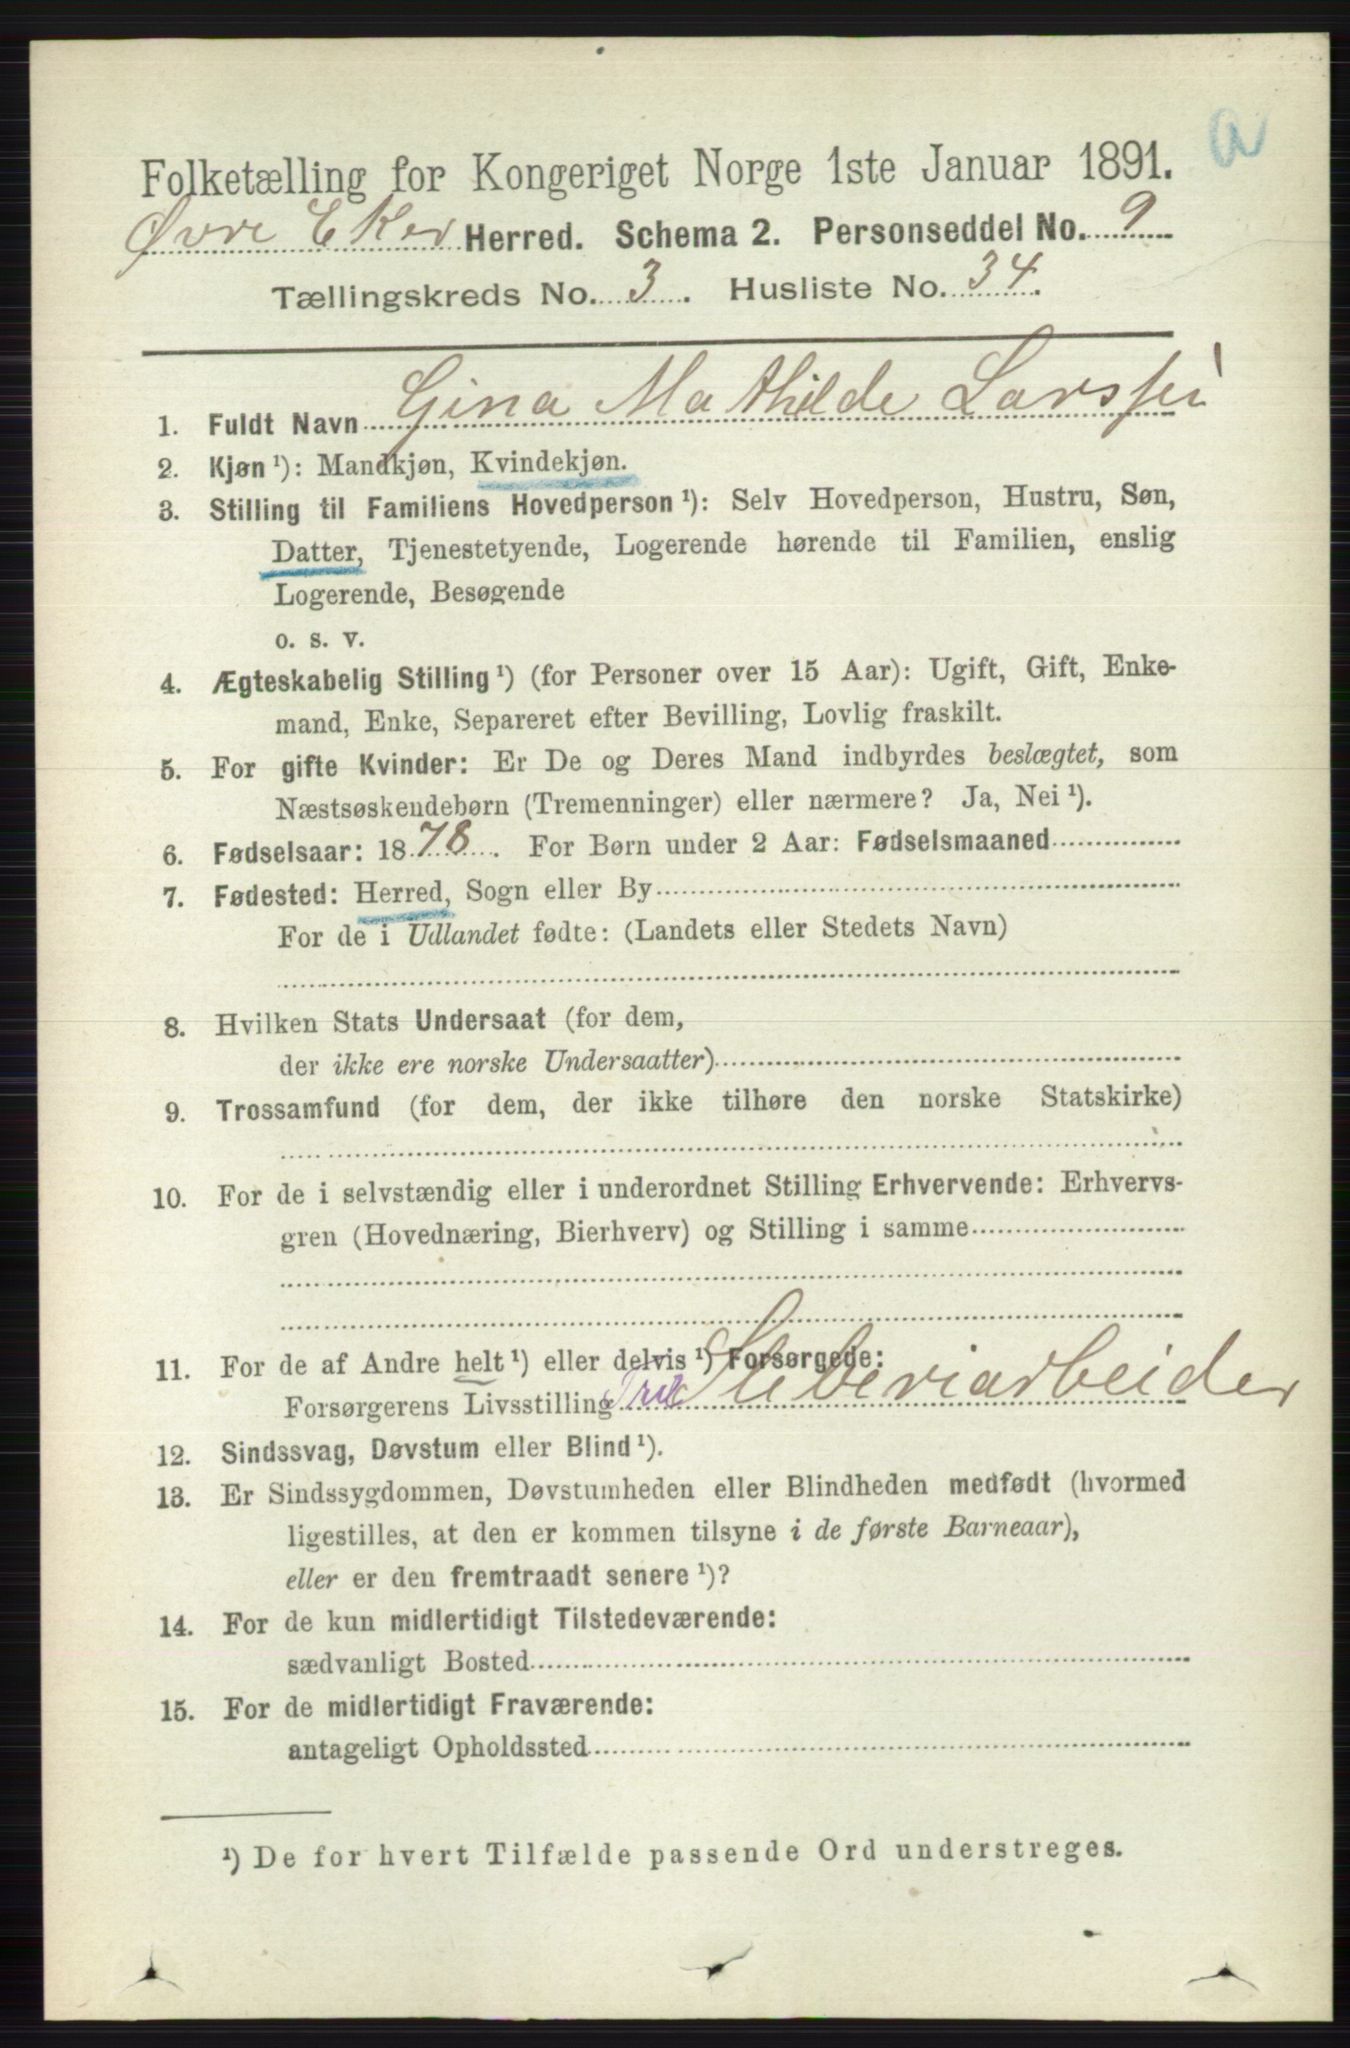 a
Folketælling for Kongeriget Norge 1ste Januar 1891.
Øvre Eker Herred. Schema 2. Personseddel No. 9
Tællingskreds No. 3. Husliste No. 34.
1. Fuldt Navn Gina Mathilde Larssen
2. Kjøn ¹): Mandkjøn, Kvindekjøn.
3. Stilling til Familiens Hovedperson ¹): Selv Hovedperson, Hustru, Søn,
Datter, Tjenestetyende, Logerende hørende til Familien, enslig
Logerende, Besøgende
o. s. v.
4. Ægteskabelig Stilling ¹) (for Personer over 15 Aar): Ugift, Gift, Enke-
mand, Enke, Separeret efter Bevilling, Lovlig fraskilt.
5. For gifte Kvinder: Er De og Deres Mand indbyrdes beslægtet, som
Næstsøskendebørn (Tremenninger) eller nærmere? Ja, Nei ¹).
6. Fødselsaar: 1878. For Børn under 2 Aar: Fødselsmaaned
7. Fødested: Herred, Sogn eller By
For de i Udlandet fødte: (Landets eller Stedets Navn)
8. Hvilken Stats Undersaat (for dem,
der ikke ere norske Undersaatter)
9. Trossamfund (for dem, der ikke tilhøre den norske Statskirke)
10. For de i selvstændig eller i underordnet Stilling Erhvervende: Erhvervs-
gren (Hovednæring, Bierhverv) og Stilling i samme
11. For de af Andre helt ¹) eller delvis ¹) Forsørgede:
Forsørgerens Livsstilling Sliberiarbeider
12. Sindssvag, Døvstum eller Blind ¹).
13. Er Sindssygdommen, Døvstumheden eller Blindheden medfødt (hvormed
ligestilles, at den er kommen tilsyne i de første Barneaar),
eller er den fremtraadt senere ¹)?
14. For de kun midlertidigt Tilstedeværende:
sædvanligt Bosted
15. For de midlertidigt Fraværende:
antageligt Opholdssted
¹) De for hvert Tilfælde passende Ord understreges.